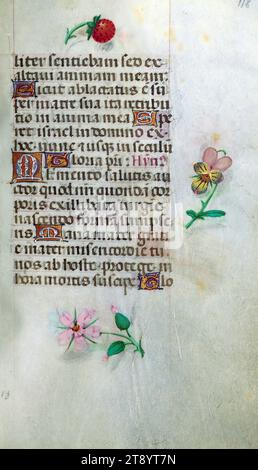 liter sentiebam sed ex
altaui animam meam
Sicut ablactatus est su
per matre sua ita retribu
tio in anima mea Spe
ret israel in domino ex
hoc nunc et usque in seculu
Gloria pri: Hyn
Memento salutis au
ctor quod nri quondā cor
poris ex illibata virgine
nascendo formā sumpse
ris Maria mater gratie
mater misericordie tu
nos ab hoste protege in
hora mortis suscipe Glo
alamy
Image ID: 2T8YT7N
www.alamy.com